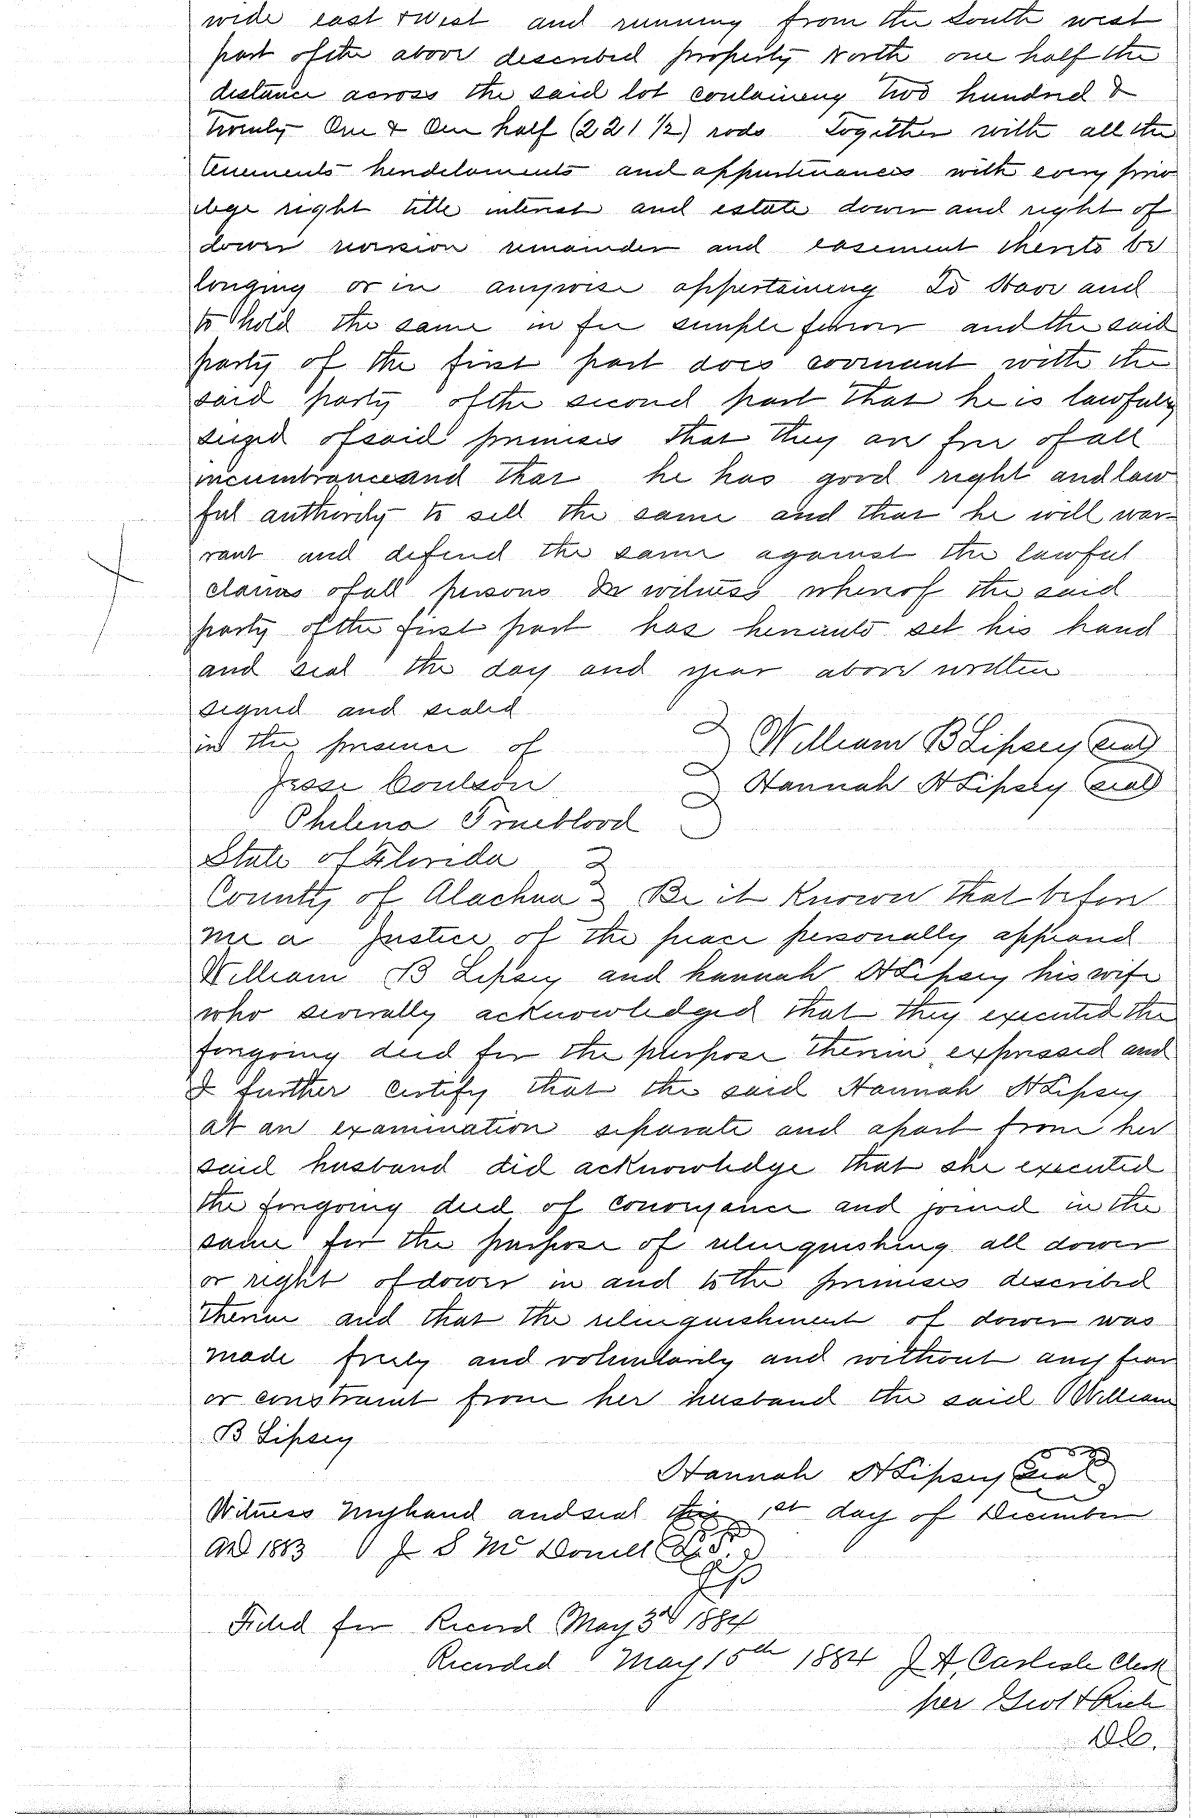 wide east & West and running from the South west
part of the above described property North one half the
distance across the said lot containing two hundred &
Twenty One & One half (221 1/2) rods Together with all the
tenements hereditaments and appurtenances with every priv
ilege right title interest and estate dower and right of
dower reversion remainder and easement thereto be
longing or in anywise appertaining To Have and
to hold the same in fee simple forever and the said
party of the first part does covenant with the
said party of the second part that he is lawfully
seized of said premises that they are free of all
incumbrance and that he has good right and law
ful authority to sell the same and that he will war-
rant and defend the same against the lawful
claims of all persons In witness whereof the said
party of the first part has hereunto set his hand
and seal the day and year above written
signed and sealed
in the presence of William B Lipsey (seal)
Jesse Coulson Hannah H Lipsey (seal)
Philena Trueblood
State of Florida
County of Alachua Be it Known that before
me a Justice of the peace personally appeared
William B Lipsey and hannah H Lipsey his wife
who severally acknowledged that they executed the
foregoing deed for the purpose therein expressed and
I further certify that the said Hannah H Lipsey
at an examination separate and apart from her
said husband did acknowledge that she executed
the foregoing deed of conveyance and joined in the
same for the purpose of relinquishing all dower
or right of dower in and to the premises described
therein and that the relinquishment of dower was
made freely and voluntarily and without any fear
or constraint from her husband the said William
B Lipsey
Hannah H Lipsey (seal)
Witness my hand and seal this 1st day of December
AD 1883 J S McDonell (L.S.)
JP
Filed for Record May 3d 1884
Recorded May 15th 1884 J A. Carlisle Clerk
per Rich
D.C.